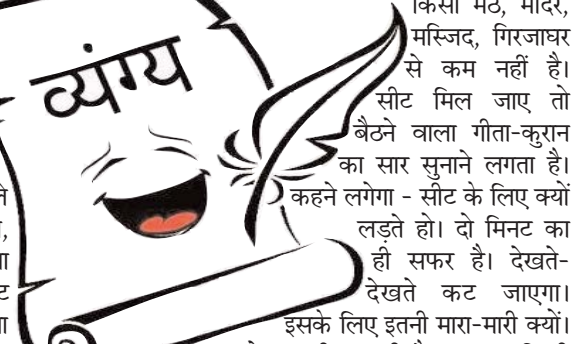 व्यंग्य
किसी मठ, मंदिर,
मस्जिद, गिरजाघर
से कम नहीं है।
सीट मिल जाए तो
बैठने वाला गीता-कुरान
का सार सुनाने लगता है।
कहने लगेगा - सीट के लिए क्यों
लड़ते हो। दो मिनट का
ही सफर है। देखते-
देखते कट जाएगा।
इसके लिए इतनी मारा-मारी क्यों।